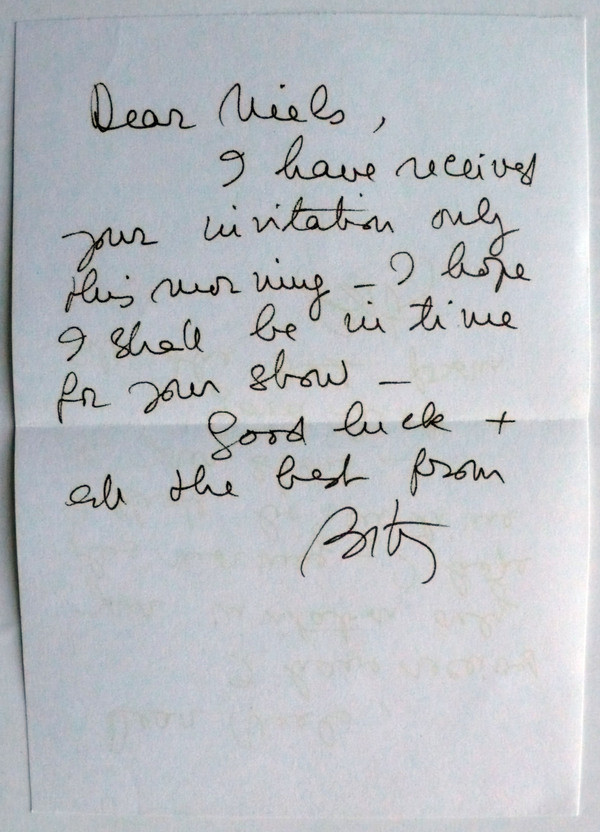 Dear Niels,
I have received
your invitation only
this morning – I hope
I shall be in time
for your show –
Good luck +
all the best from